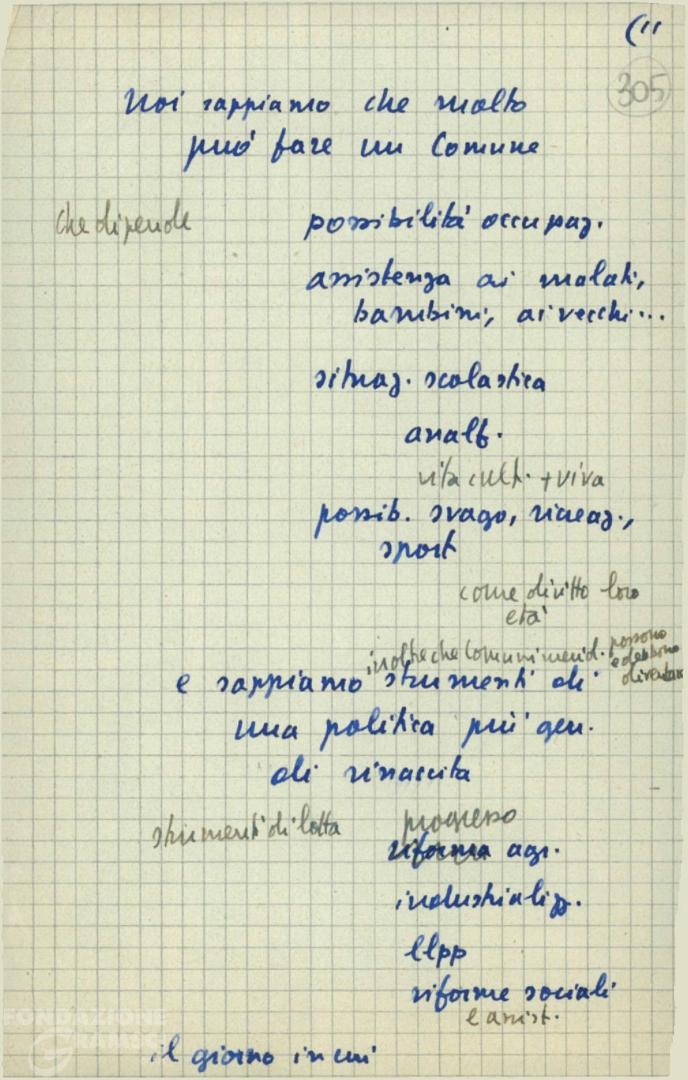 (11
305
Noi sappiamo che molto
può fare un Comune
che dipende possibilità occupaz.
assistenza ai malati,
bambini, ai vecchi...
situaz. scolastica
analf.
vita cult. + viva
possib. svago, ricreaz.,
sport
come diritto loro
età
inoltre che Comuni merid. possono
e debbono
diventare
e sappiamo strumenti di
una politica più gen.
di rinascita
strumenti di lotta progresso
riforma agr.
industrializz.
llpp
riforme sociali
e assist.
il giorno in cui
FONDAZIONE
GRAMSCI